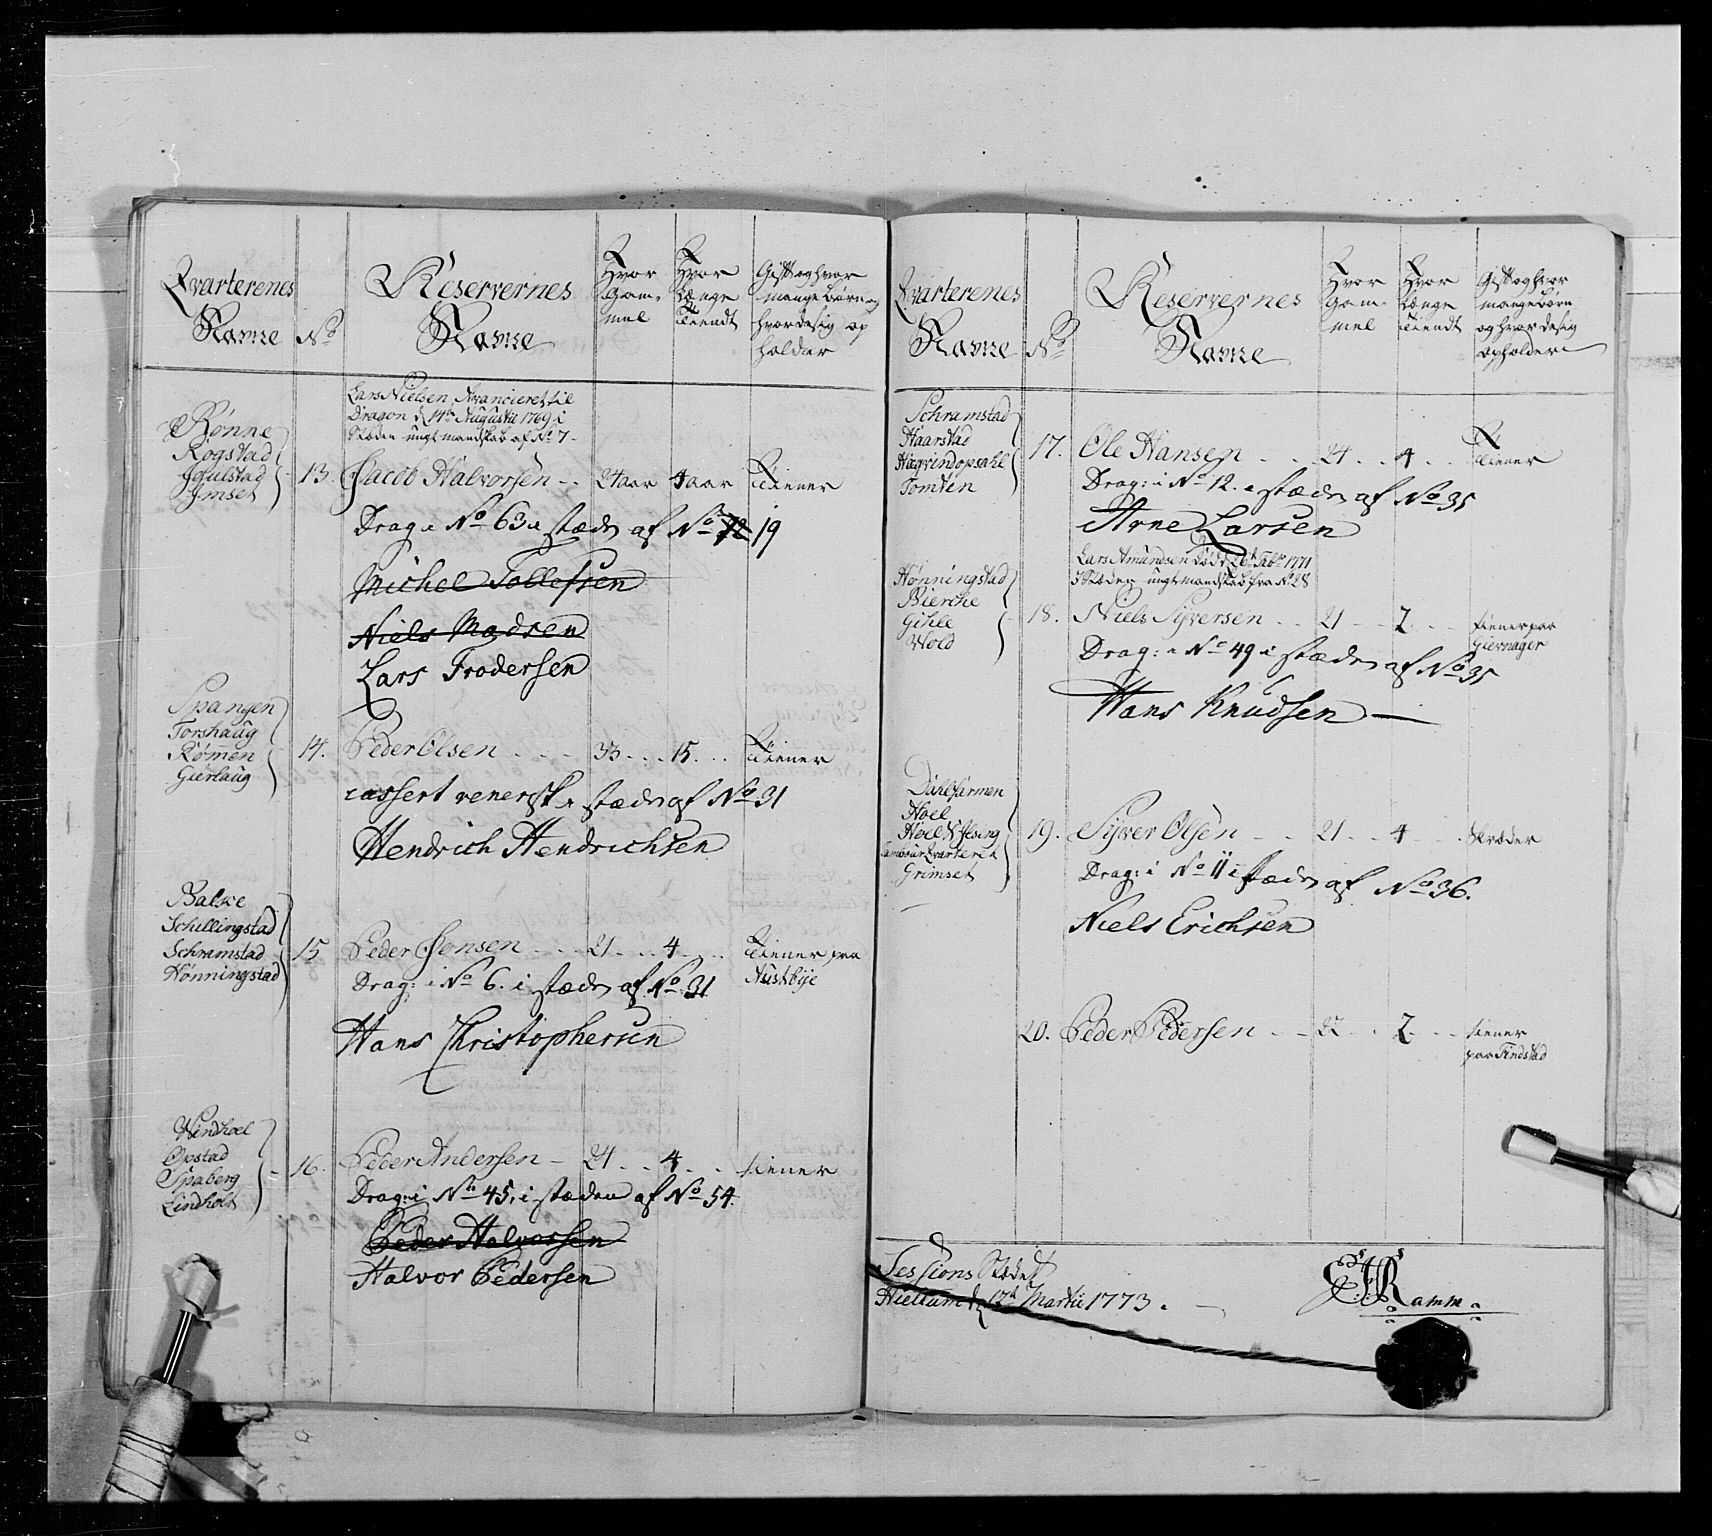 Qvarterenes
Nafne
No
Reservernes
Nafne
Hvor
Gam-
mel
Hvor
Længe
tiendt
Gift og hvor
mange børn og
hvor de sig op
holder
Lars Nielsen, Avancieret til
Dragon d 14de Augusti 1769 i
Stæden ungt mandskab af No 7.
Rønne
Rogstad
Imset
13. Jacob Halvorsen - - 24 aar 4 aar tiener
Drag. i No 63 i stæden af No 72 19
Michel Tollefsen
Niels Madsen
Lars Frodersen
Spangen
Torshaug
Rømen
Gierlaug
14. Peder Olsen - - - 33 - - 15 - - tiener
i stæden af No 31
Hendrich Hendrichsen
Balke
Schillingstad
Schramstad
Hønningstad
15 Peder Jonsen - - - 21 - - 4 - - tiener paa
Austbye
Drag: i No 6. i stæden af No 31
Hans Christophersen
Windhoel
Opstad
Spaberg
Lindholt
16. Peder Andersen - 21 - - 4 - - tiener
Drag: i No 45, i stæden af No 54.
Peder Halvorsen
Halvor Pedersen
Qvarterenes
Nafne
No
Reservernes
Nafne
Hvor
Gam-
mel
Hvor
Længe
tiendt
Gift og hvor
mange børn
og hvor de sig
opholder
Schramstad
Haarstad
Hægrindopsahl
Tomten
17. Ole Hansen - - 24 - - 4 - - tiener
Drag: i No 12. i stæden af No 35
Arne Larsen
Lars Amundsen død d 26de Febr 1771
i Stæden ungt mandskab fra No 28
Hønningstad
Bierche
Gihle
Wold
18. Niels Syversen - - 21 - - 2 - - tiener paa
Giernager
Drag: i No 49 i stæden af No 35
Hans Knudsen
Dahlsarmen
Hoel
Grimset
19. Syver Olsen - - 21 - - 4 - - Skræder
Drag: i No 11 i stæden af No 36.
Niels Erichsen
20. Peder Pedersen - - 22 - 2 - - tiener
paa Findstad
Sessions Stædet
Hiellum d 12te Martii 1773.
Ramm.